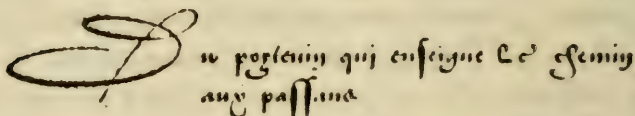 Du poyteuin qui enseigne le chemin
aux passans